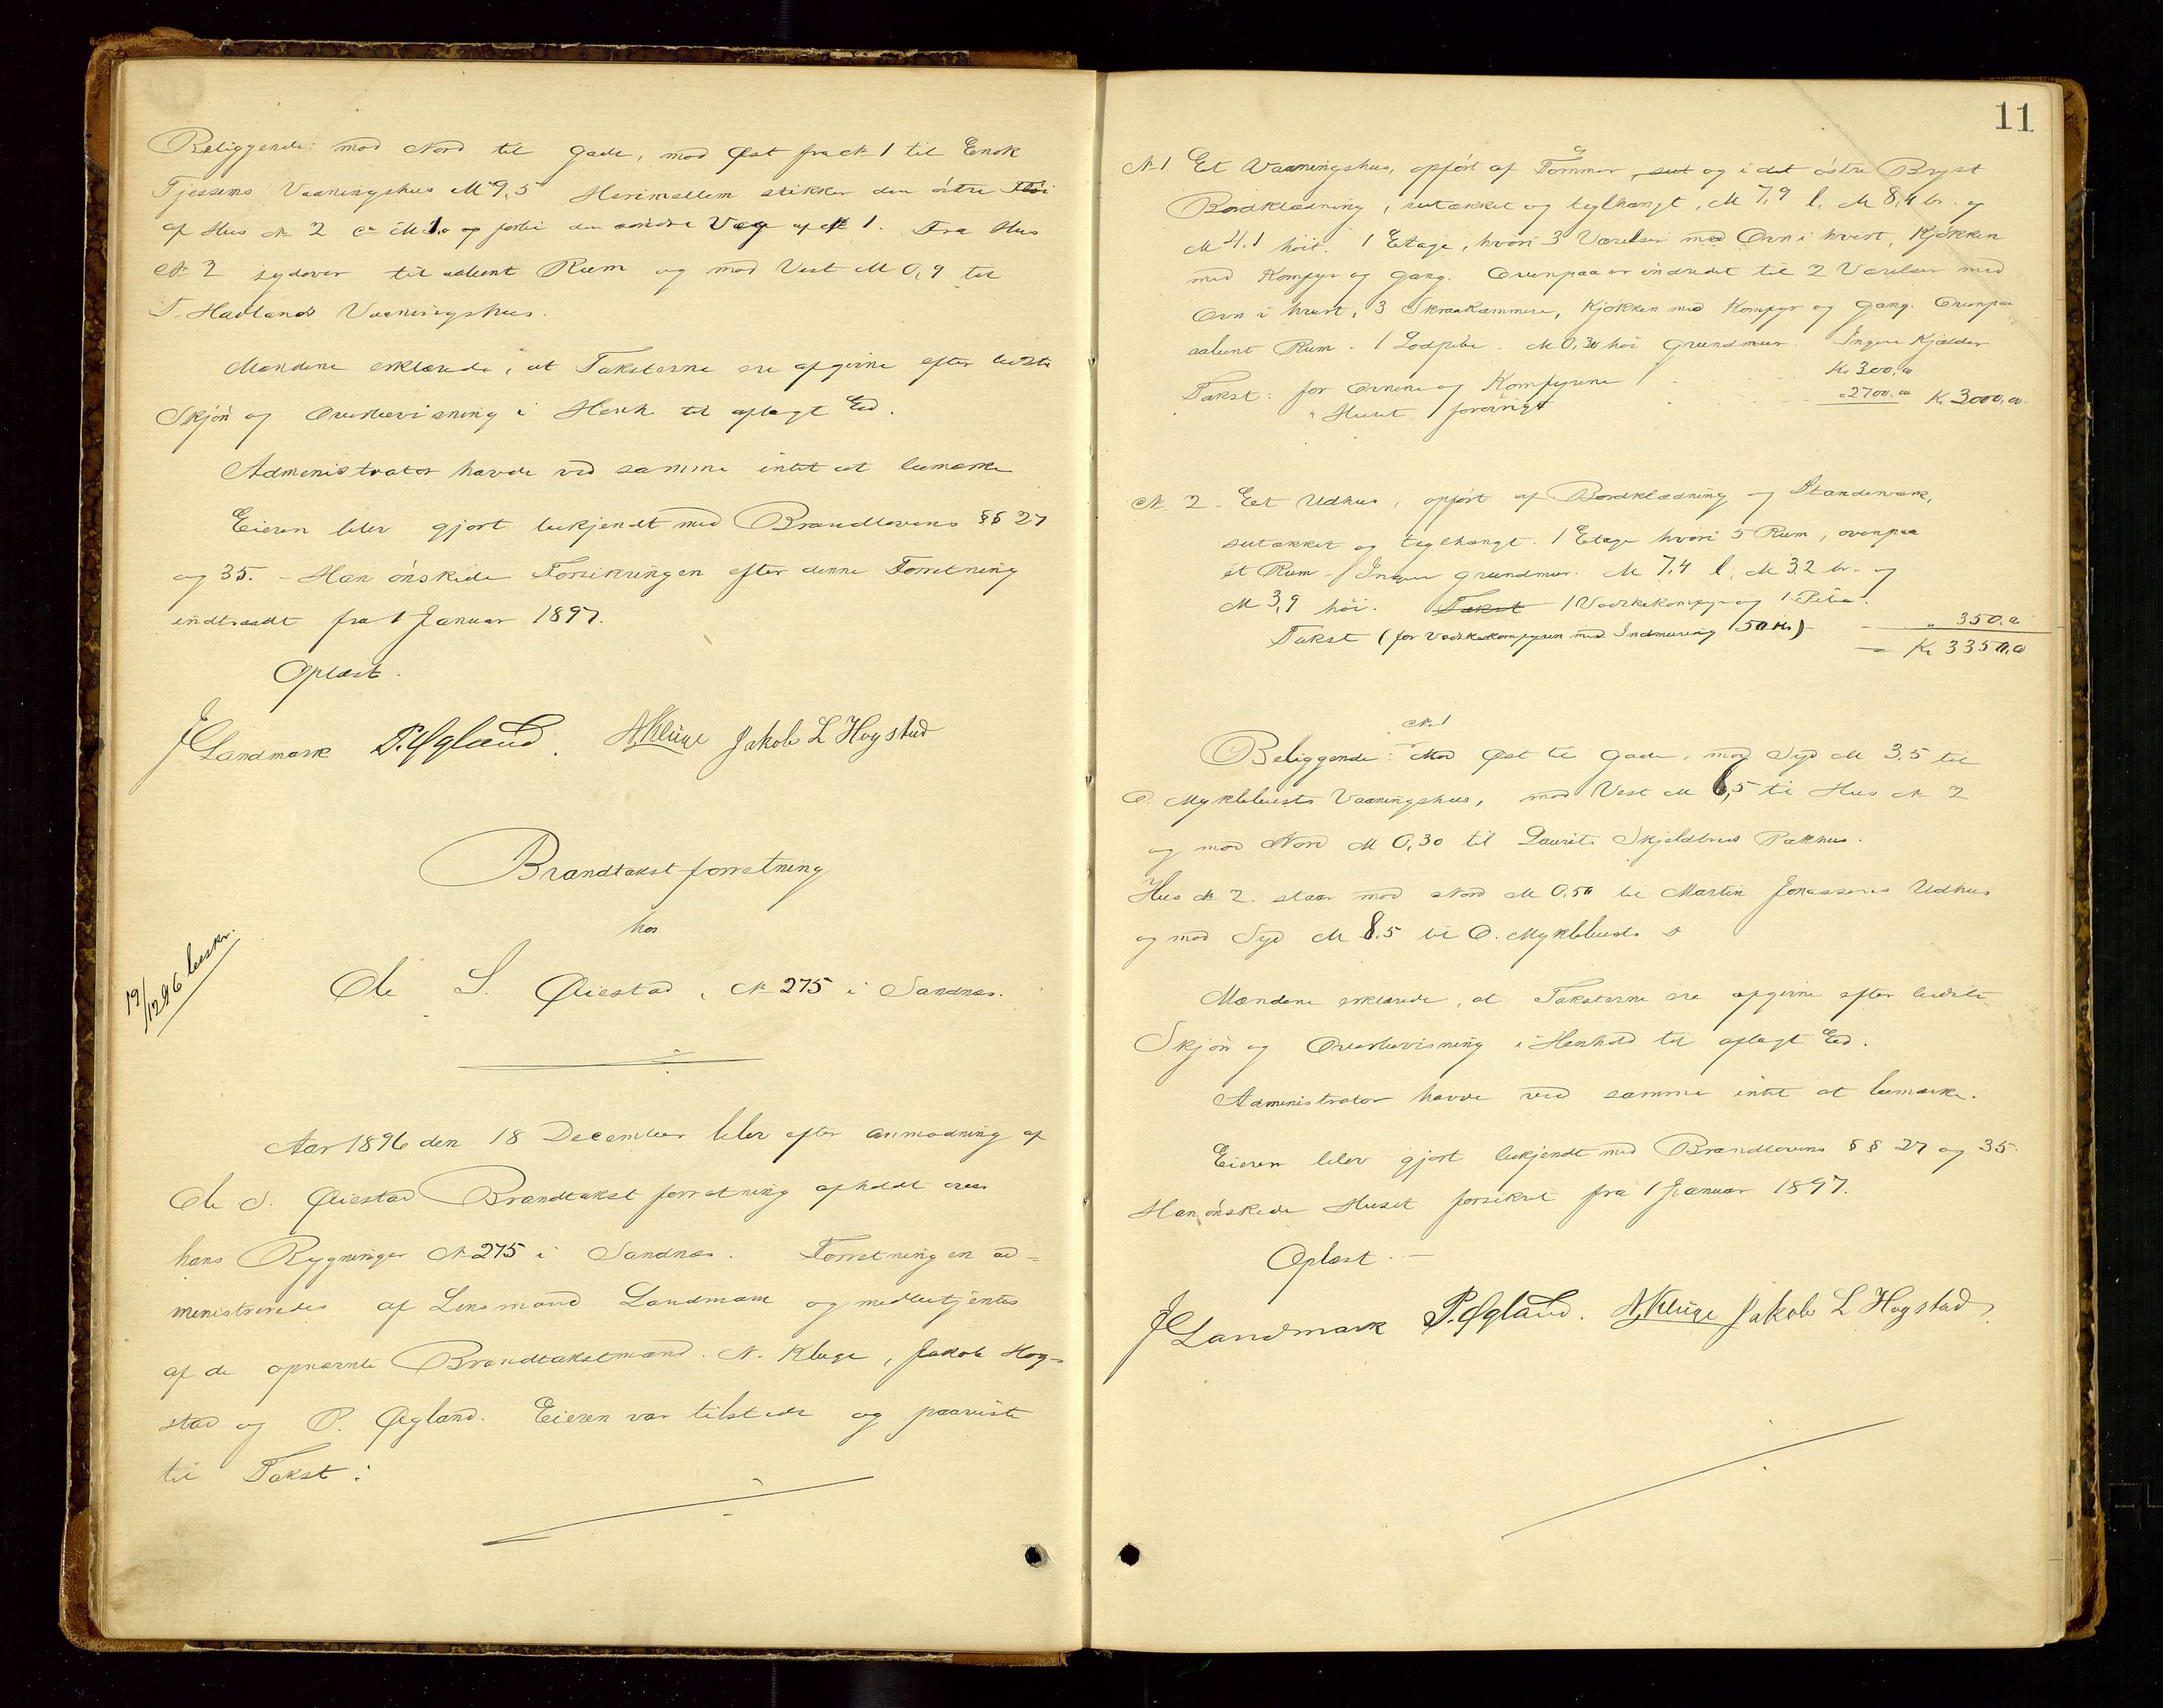 Beliggende: mod Nord til Gade, mod Øst fra № 1 til Enok
Tjessems Vaaningshus M 9,5 Herimellem stikker den østre
af Hus № 2 ca M 1,0 op forbi den søndre Væg af № 1. Fra Hus
№ 2 sydover til aabent Rum og mod Vest M 0,9 til
T. Hadlands Vaaningshus.
Mændene erklærede, at Taksterne ere afgivne efter bedste
Skjøn og Overbevisning i Henh. til aflagt Ed.
Administrator havde ved samme intet at bemærke
Eieren blev gjort bekjendt med Brandlovens §§ 27
og 35. - Han ønskede Forsikringen efter denne Forretning
indtraadt fra 1 Januar 1897.
Oplæst.
J Landmark P. Øgland. N. Kluge Jakob L Hogstad
Brandtakstforretning
hos
19/12 96 beskr.
Ole S. Øiestad, № 275 i Sandnæs.
Aar 1896 den 18 December blev efter Anmodning af
Ole S. Øiestad Brandtakstforretning afholdt over
hans Bygninger № 275 i Sandnæs. Forretningen ad-
ministreredes af Lensmand Landmark og medbetjentes
af de opnævnte Brandtakstmænd. N. Kluge, Jakob Hog-
stad og P. Øgland. Eieren var tilstede og paaviste
til Takst:
11
№ 1. Et Vaaningshus, opført af Tømmer, og i det østre Bryst
Bordklædning, sutækket og teglhængt, M 7,9 l. M 8,4 br. og
M 4.1 høit. 1 Etage, hvori 3 Værelser med Ovn i hvert, Kjøkken
med Komfyr og Gang. Ovenpaa er indredet til 2 Værelser med
Ovn i hvert, 3 Skraakammere, Kjøkken med Komfyr og Gang. Ovenpaa
aabent Rum - 1 Lodpibe - M 0,30 høi Grundmur. Ingen Kjælder
Takst: for Ovnene og Komfyrene Kr 300,00
" Huset forøvrigt " 2700.00 Kr. 3000,00.
№ 2 - Eet Udhus, opført af Bordklædning og Stænderværk,
sutækket og teglhængt. 1 Etage hvori 5 Rum, ovenpaa
et Rum - Ingen Grundmur. M 7,4 l. M 3,2 br. og
M 3,9 høi. Takst 1 Vadskekomfyr og 1 Pibe.
Takst (for Vadskekomfyren med Indmuring 50 Kr) - " 350.00
Kr 3350,00
№ 1
Beliggende: Mod Øst til Gade, mod Syd M 3.5 til
O. Myklebusts Vaaningshus, mod Vest M 6,5 til Hus № 2
og mod Nord M 0,30 til Laurits Skjeldbreds Pakhus.
Hus № 2. staar mod Nord M 0,50 til Martin Jonassens Udhus
og mod Syd M 8.5 til O. Myklebusts D
Mændene erklærede, at Taksterne ere afgivne efter bedste
Skjøn og Overbevisning i Henhold til aflagt Ed.
Administrator havde ved samme intet at bemærke.
Eieren blev gjort bekjendt med Brandlovens §§ 27 og 35
Han ønskede Huset forsikret fra 1 Januar 1897.
Oplæst. -
J Landmark P. Øgland. N. Kluge Jakob L Hogstad